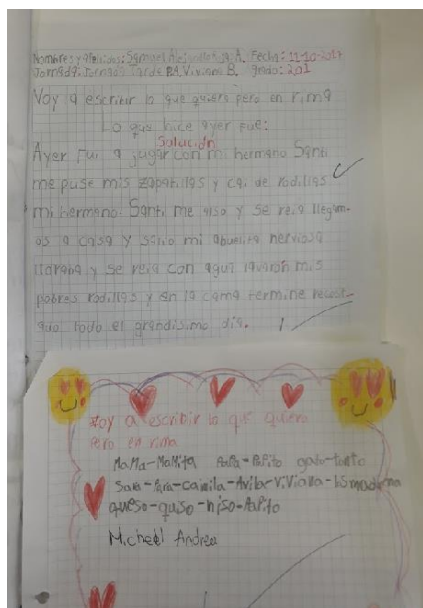 Nombres y Apellidos: Samuel Alejandro A. Fecha: 11-10-2017
Jornada: Jornada tarde PA. Viviana B. grado: 201
Voy a escribir lo que quiero pero en rima
Lo que hice ayer fue:
Solución
Ayer Fui a jugar con mi hermano Santi
me puse mis zapatillas y cai de rodillas
mi hermano Santi me viso y se reia llegam-
os a casa y salio mi abuelita nerviosa
lloraba y se reia con agua lavaron mis
pobres rodillas y en la cama termine recost-
ado todo el grandisimo dia.
Voy a escribir lo que quiero
Pero en rima
MaMa-MaMita PaPa-PaPito gato-tonto
Sara-Para-camila-Avila-ViViana-
queso-quiso-hiso-PaPito
Micheel Andrea